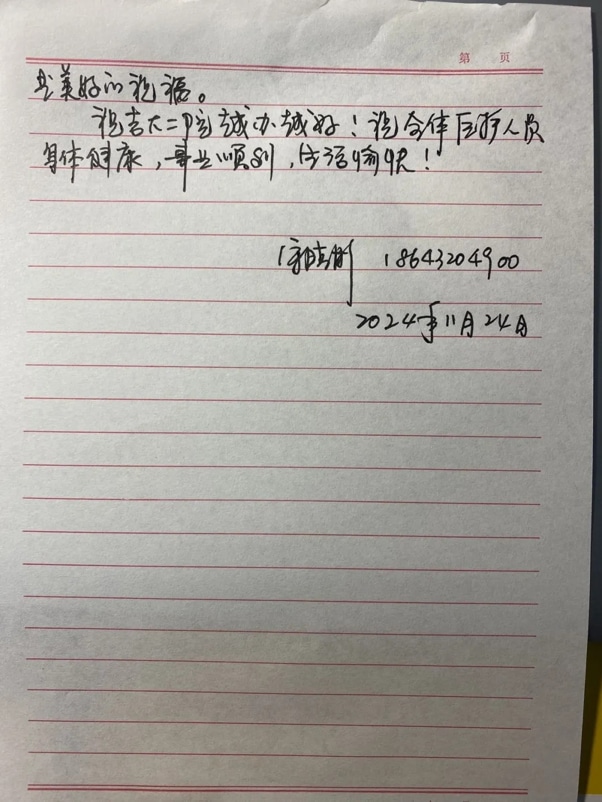 第 页
美好的祝福。
祝吉大二院越办越好！祝全体医护人员
身体健康，事业顺利，生活愉快！
18643204900
2024年11月24日